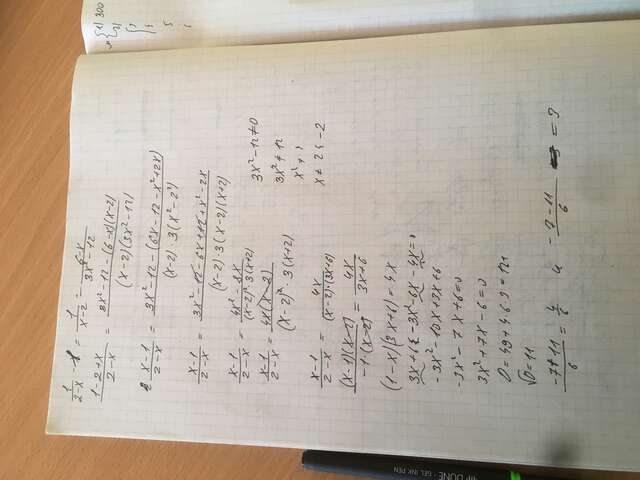 1/(2-x) - 1 = 1/(x-2) - (6-x)/(3x²-12)
(1-2+x)/(2-x) = (3x²-12-(6-x)(x-2))/((x-2)(3x²-12))
(x-1)/(2-x) = (3x²-12-(6x-12-x²+2x))/((x-2)·3(x²-2²))
(x-1)/(2-x) = (3x²-12-6x+12+x²-2x)/((x-2)·3(x-2)(x+2))
(x-1)/(2-x) = (4x²-8x)/((x-2)²·3(x+2))
(x-1)/(2-x) = (4x(x-2))/((x-2)²·3(x+2))
(x-1)/(2-x) = 4x/((x-2)·(3x+6))
((x-1)(x-2))/(-1·(x-2)) = 4x/(3x+6)
(1-x)(3x+6) = 4x
3x+6-3x²-6x-4x=0
-3x²-10x+3x+6
-3x²-7x+6=0
3x²+7x-6=0
D=49+4·6·3=121
√D=11
(-7+11)/6 = 4/6 и (-7-11)/6 = 3
3x²-12≠0
3x²≠12
x≠2 и -2
1) 300
2)
3
4
5